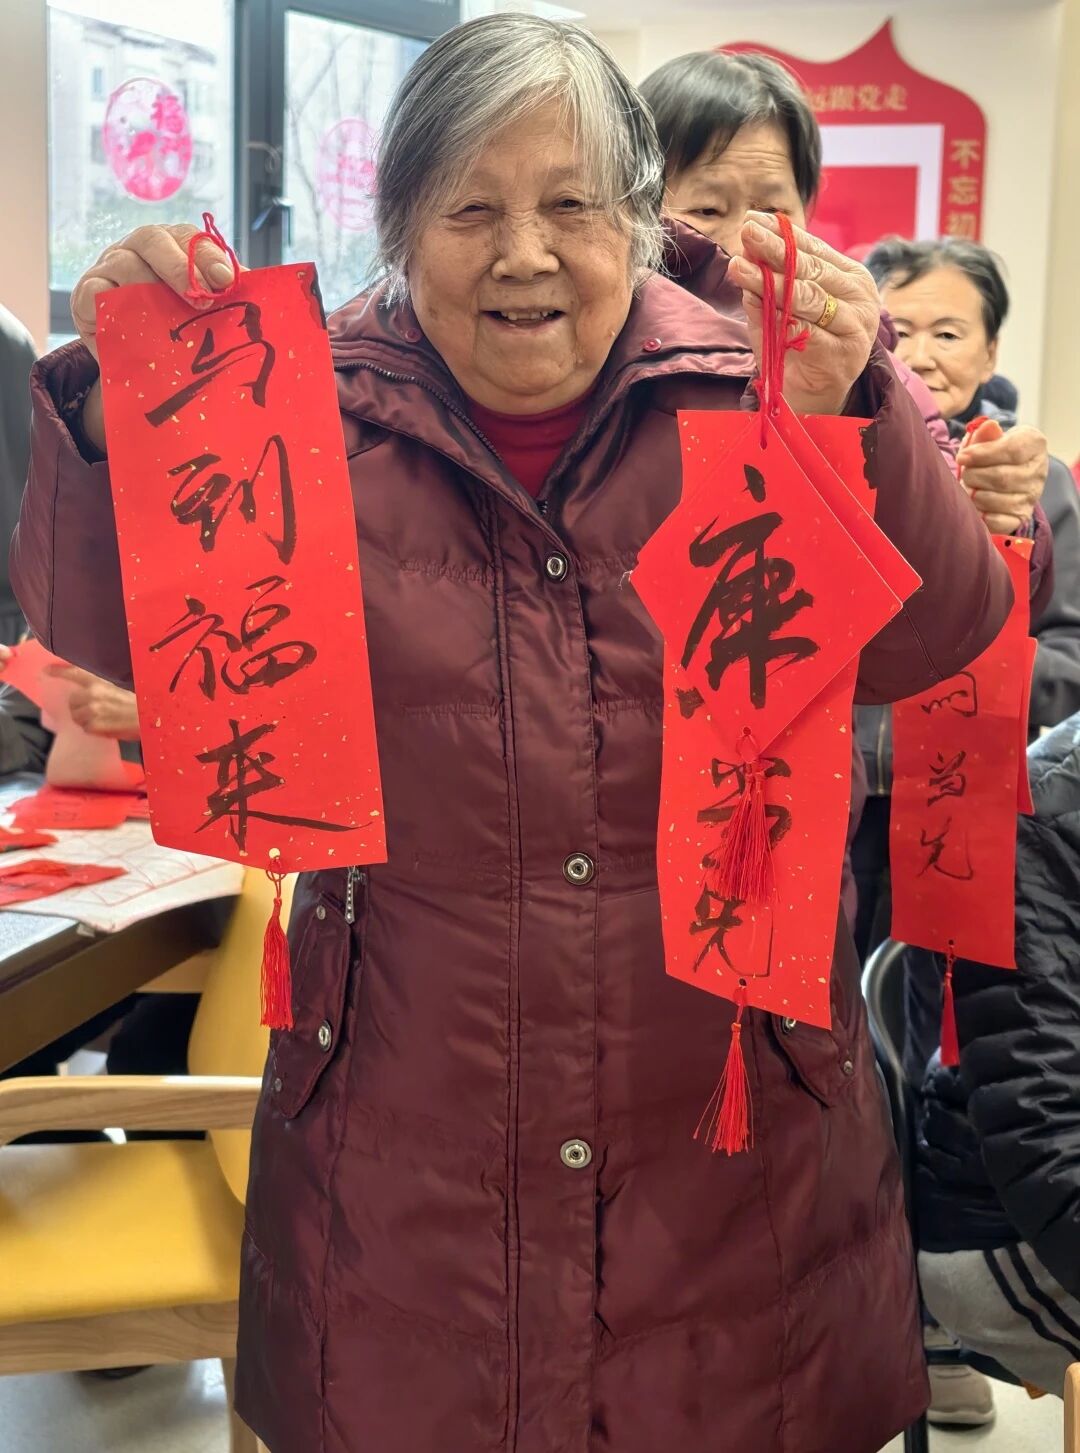 马到福来
康
当先
当先
远跟党走
不忘初
福